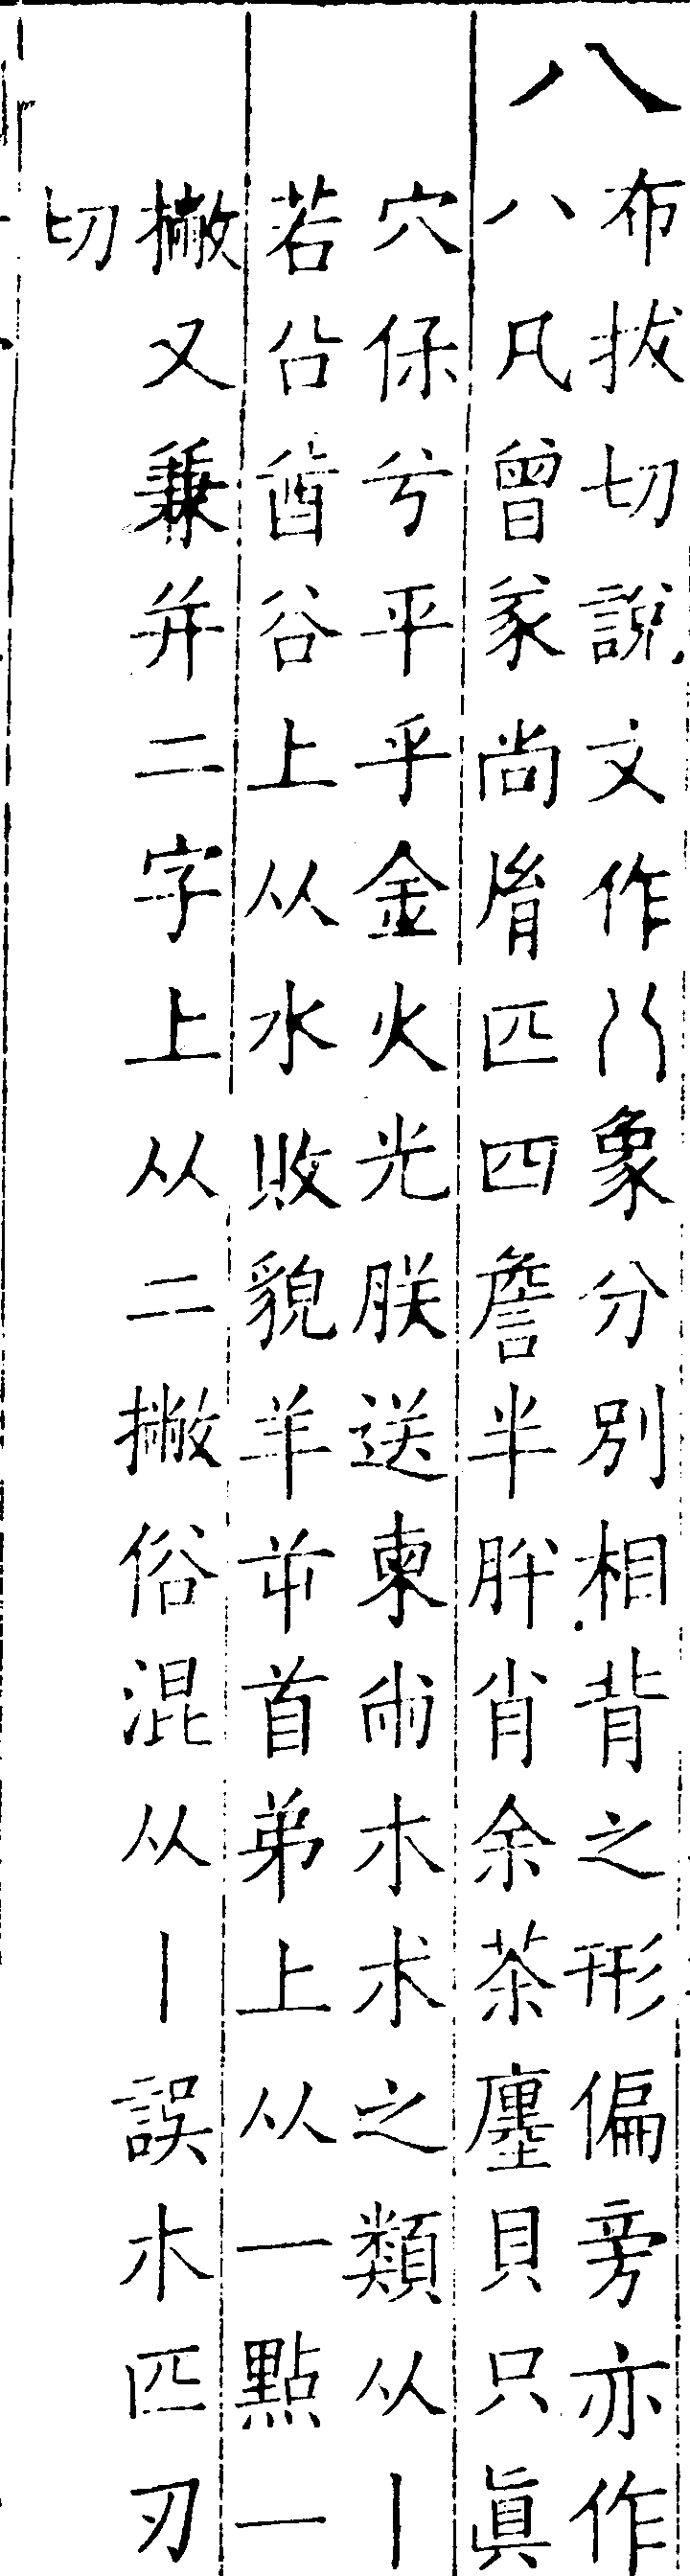 八
布拔切說文作八象分別相背之形偏旁亦作
八凡曾㒸尚㑗匹四詹半胖肖余茶廛貝只眞
穴保兮平乎金火光朕送柬𠕋朩朮之類从丨
若㕣酋谷上从水敗貌羊𦍌首弟上从一點一
撇又兼并二字上从二撇俗混从丨誤朩匹刃
切